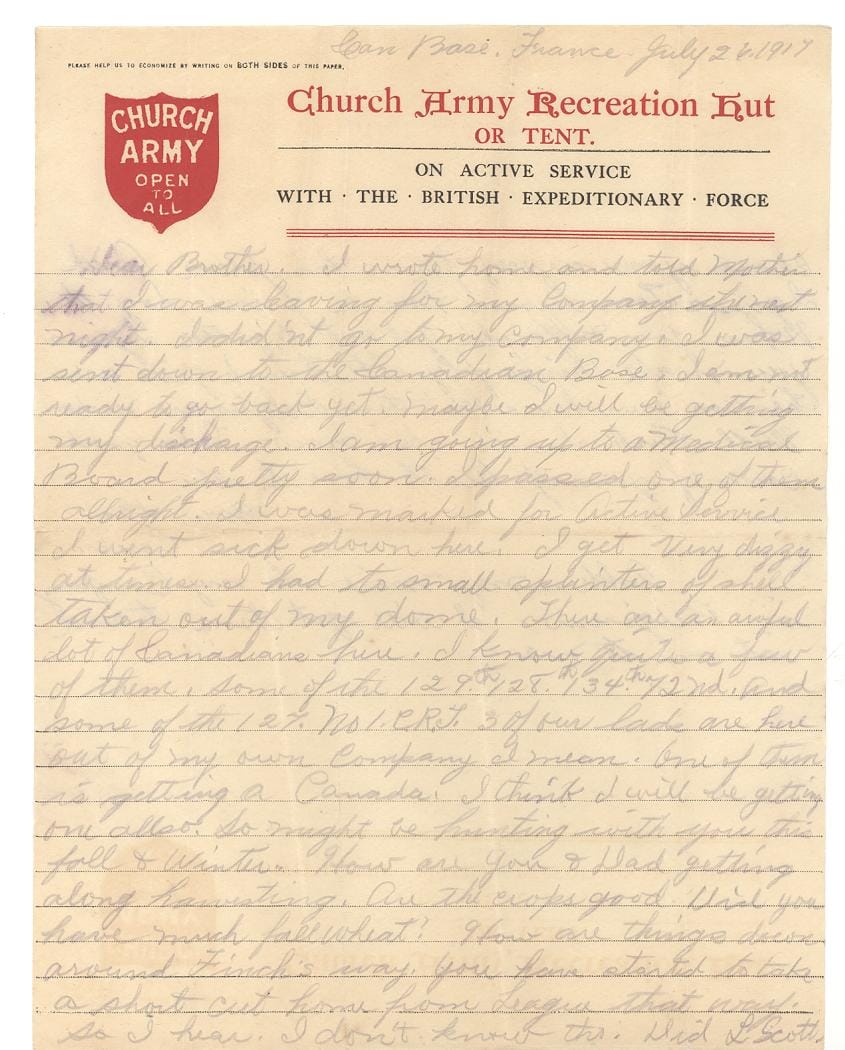 Can Base. France. July 26. 1917
PLEASE HELP US TO ECONOMIZE BY WRITING ON BOTH SIDES OF THIS PAPER.
CHURCH
ARMY
OPEN
TO
ALL
Church Army Recreation Hut
OR TENT.
ON ACTIVE SERVICE
WITH · THE · BRITISH · EXPEDITIONARY · FORCE
Dear Brother. I wrote home and told Mother
that I was leaving for my Company the next
night. I did'nt go to my Company. I was
sent down to the Canadian Base. I am not
ready to go back yet. maybe I will be getting
my discharge. I am going up to a Medical
Board pretty soon. I passed one of them
allright. I was marked for Active Service
I went sick down here. I get Very dizzy
at times. I had to small splinters of shell
taken out of my dome. There are an awful
lot of Canadians here. I know quite a few
of them, some of the 129th 128th 134th 72nd. and
some of the 127. No 1. C.R.T. 3 of our lads are here
out of my own Company I mean. One of them
is getting a Canada. I think I will be getting
one allso. So might be hunting with you this
fall & Winter. How are you & Dad getting
along harvesting. Are the crops good. Did you
have much fall wheat? How are things down
around Finch's way. You have started to take
a short cut home from League that way.
So I hear. I don't know tho. Did L. Scott